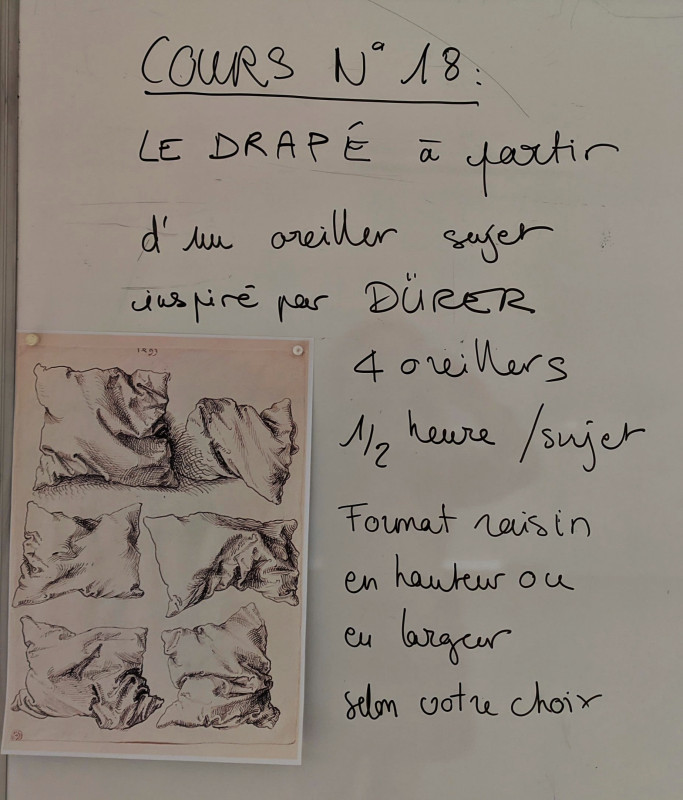 COURS N° 18:
LE DRAPÉ à partir
d'un oreiller sujet
inspiré par DÜRER
4 oreillers
1/2 heure /sujet
Format raisin
en hauteur ou
en largeur
selon votre choix